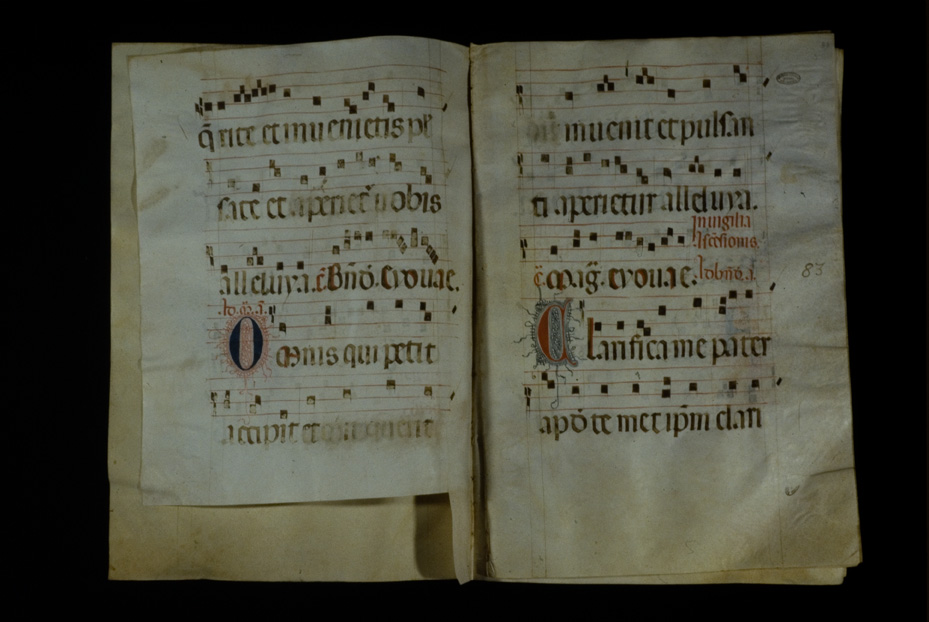 q̄rite et inuenietis pl
sate et aperiet̄ uobis
alleluya. c̄ Bn̄d̄. Evouae.
Omnis qui petit
accipit et qui querit
inuenit et pulsan
ti aperietur alleluya.
In uigilia
c̄ Maḡ. evouae.
83
Clarifica me pater
apō te met ip̄m clari